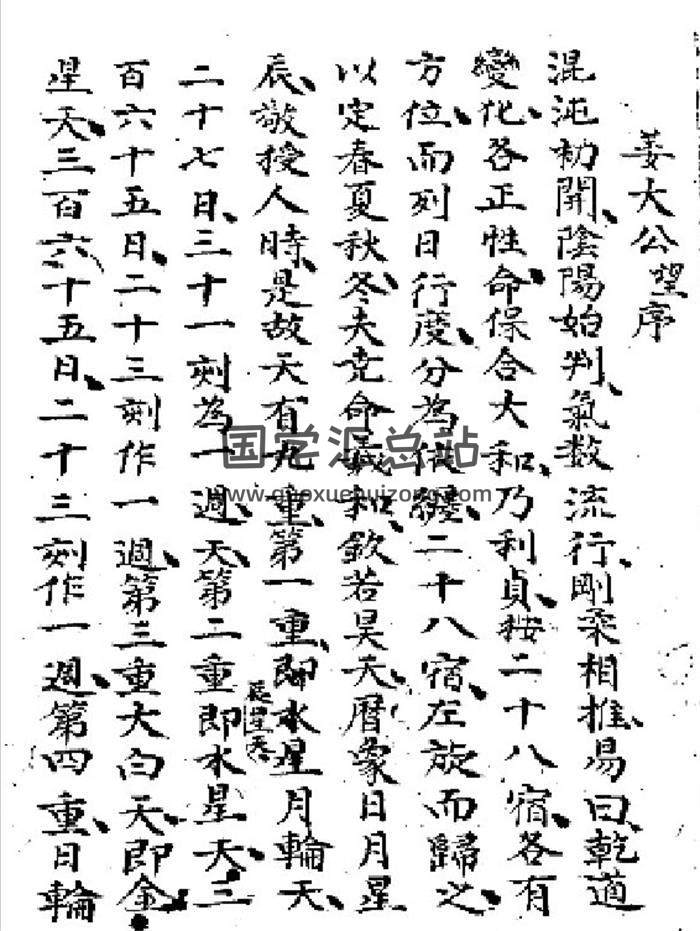 姜大公望序
混沌初開陰陽始判氣数流行剛柔相推易曰乾道
變化各正性命保合大和乃利貞按二十八宿各有
方位而列日行度分為伏纏二十八宿左旋而歸之
以定春夏秋冬夫堯命羲和欽若昊天曆象日月星
辰敬授人時是故天有九重第一重即水星月輪天
辰星天
二十七日三十一刻為一週天第二重即水星天三
百六十五日二十三刻作一週第三重大白天即金
星天三百六十五日二十三刻作一週第四重日輪
国学汇总站
www.guoxuehuizong.com